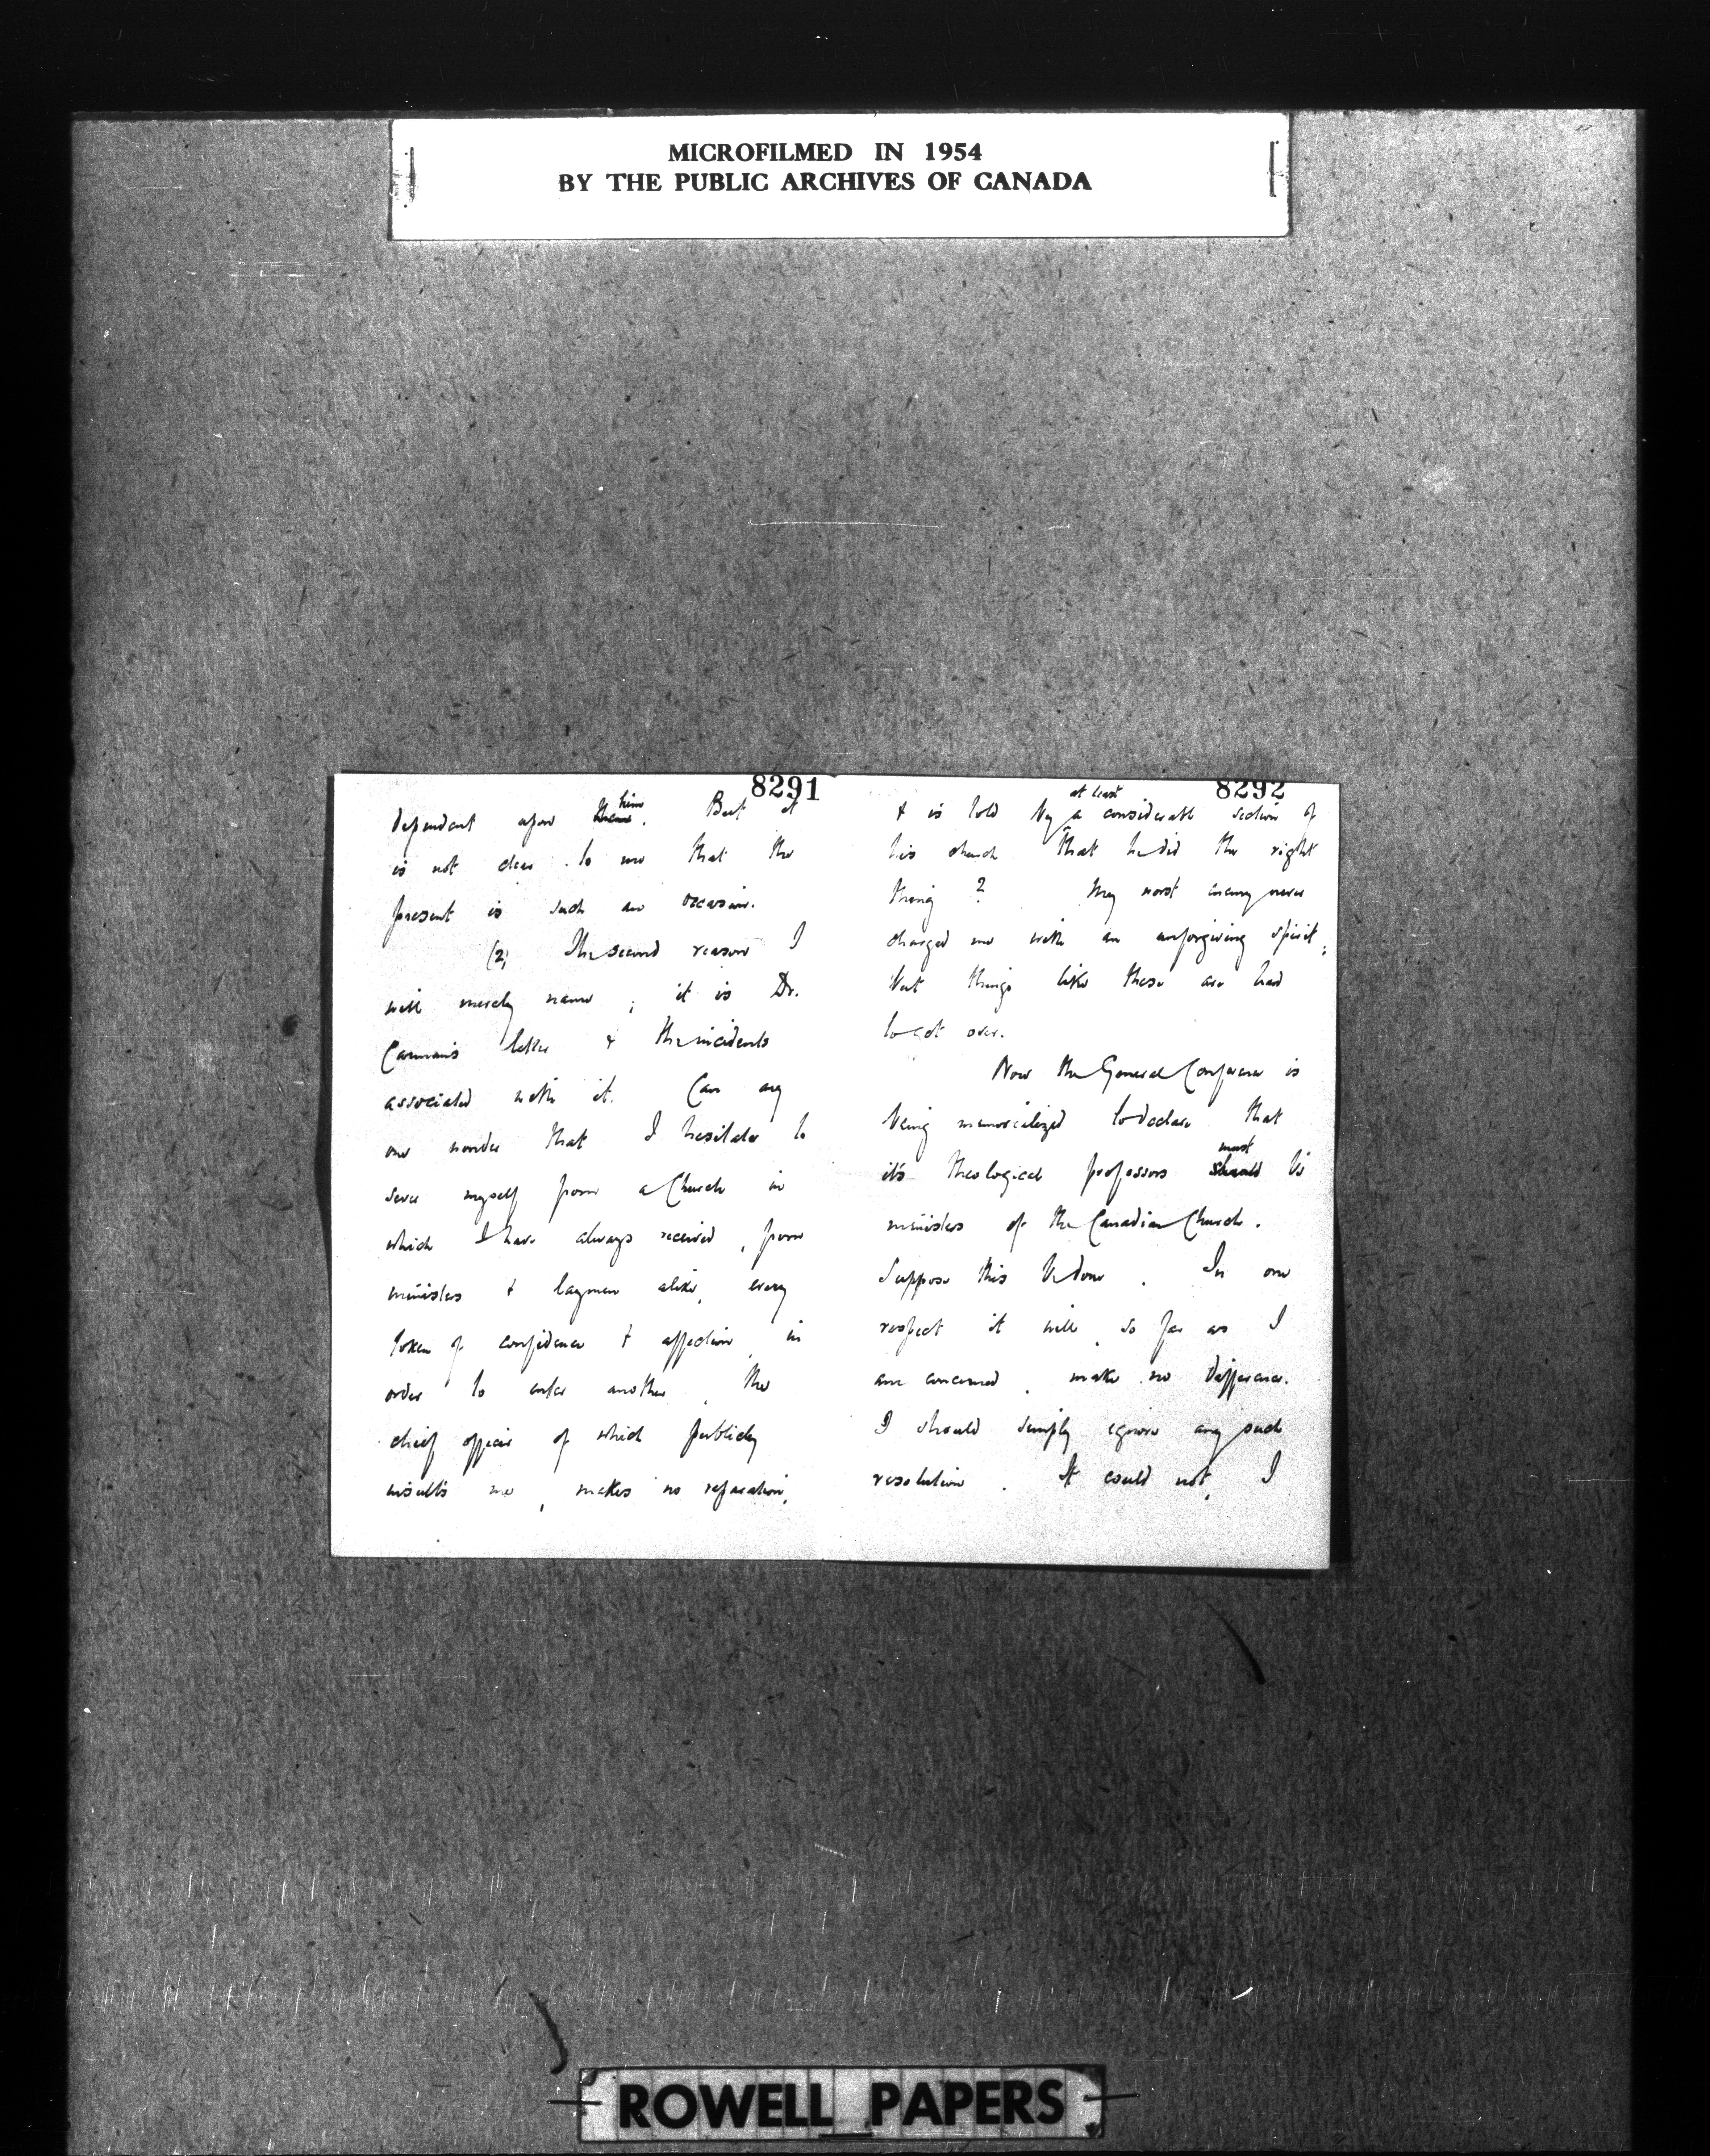 MICROFILMED IN 1954
BY THE PUBLIC ARCHIVES OF CANADA
8291
dependent upon them him. But it
is not clear to me that the
present is such an occasion.
(2) The second reason I
will merely name; it is Dr.
Carman's letter & the incidents
associated with it. Can any
one wonder that I hesitate to
sever myself from a Church in
which I have always received, from
ministers & laymen alike, every
token of confidence & affection, in
order to enter another, the
chief officer of which publicly
insults me, makes no reparation,
8292
& is told by at least a considerable section of
his church that he did the right
thing? My worst enemy never
charged me with an unforgiving spirit;
but things like these are hard
to get over.
Now the General Conference is
being memorialized to declare that
it's theological professors should must be
ministers of the Canadian Church.
Suppose this be done. In one
respect it will, so far as I
am concerned, make no difference.
I should simply ignore any such
resolution. It could not, I
ROWELL PAPERS